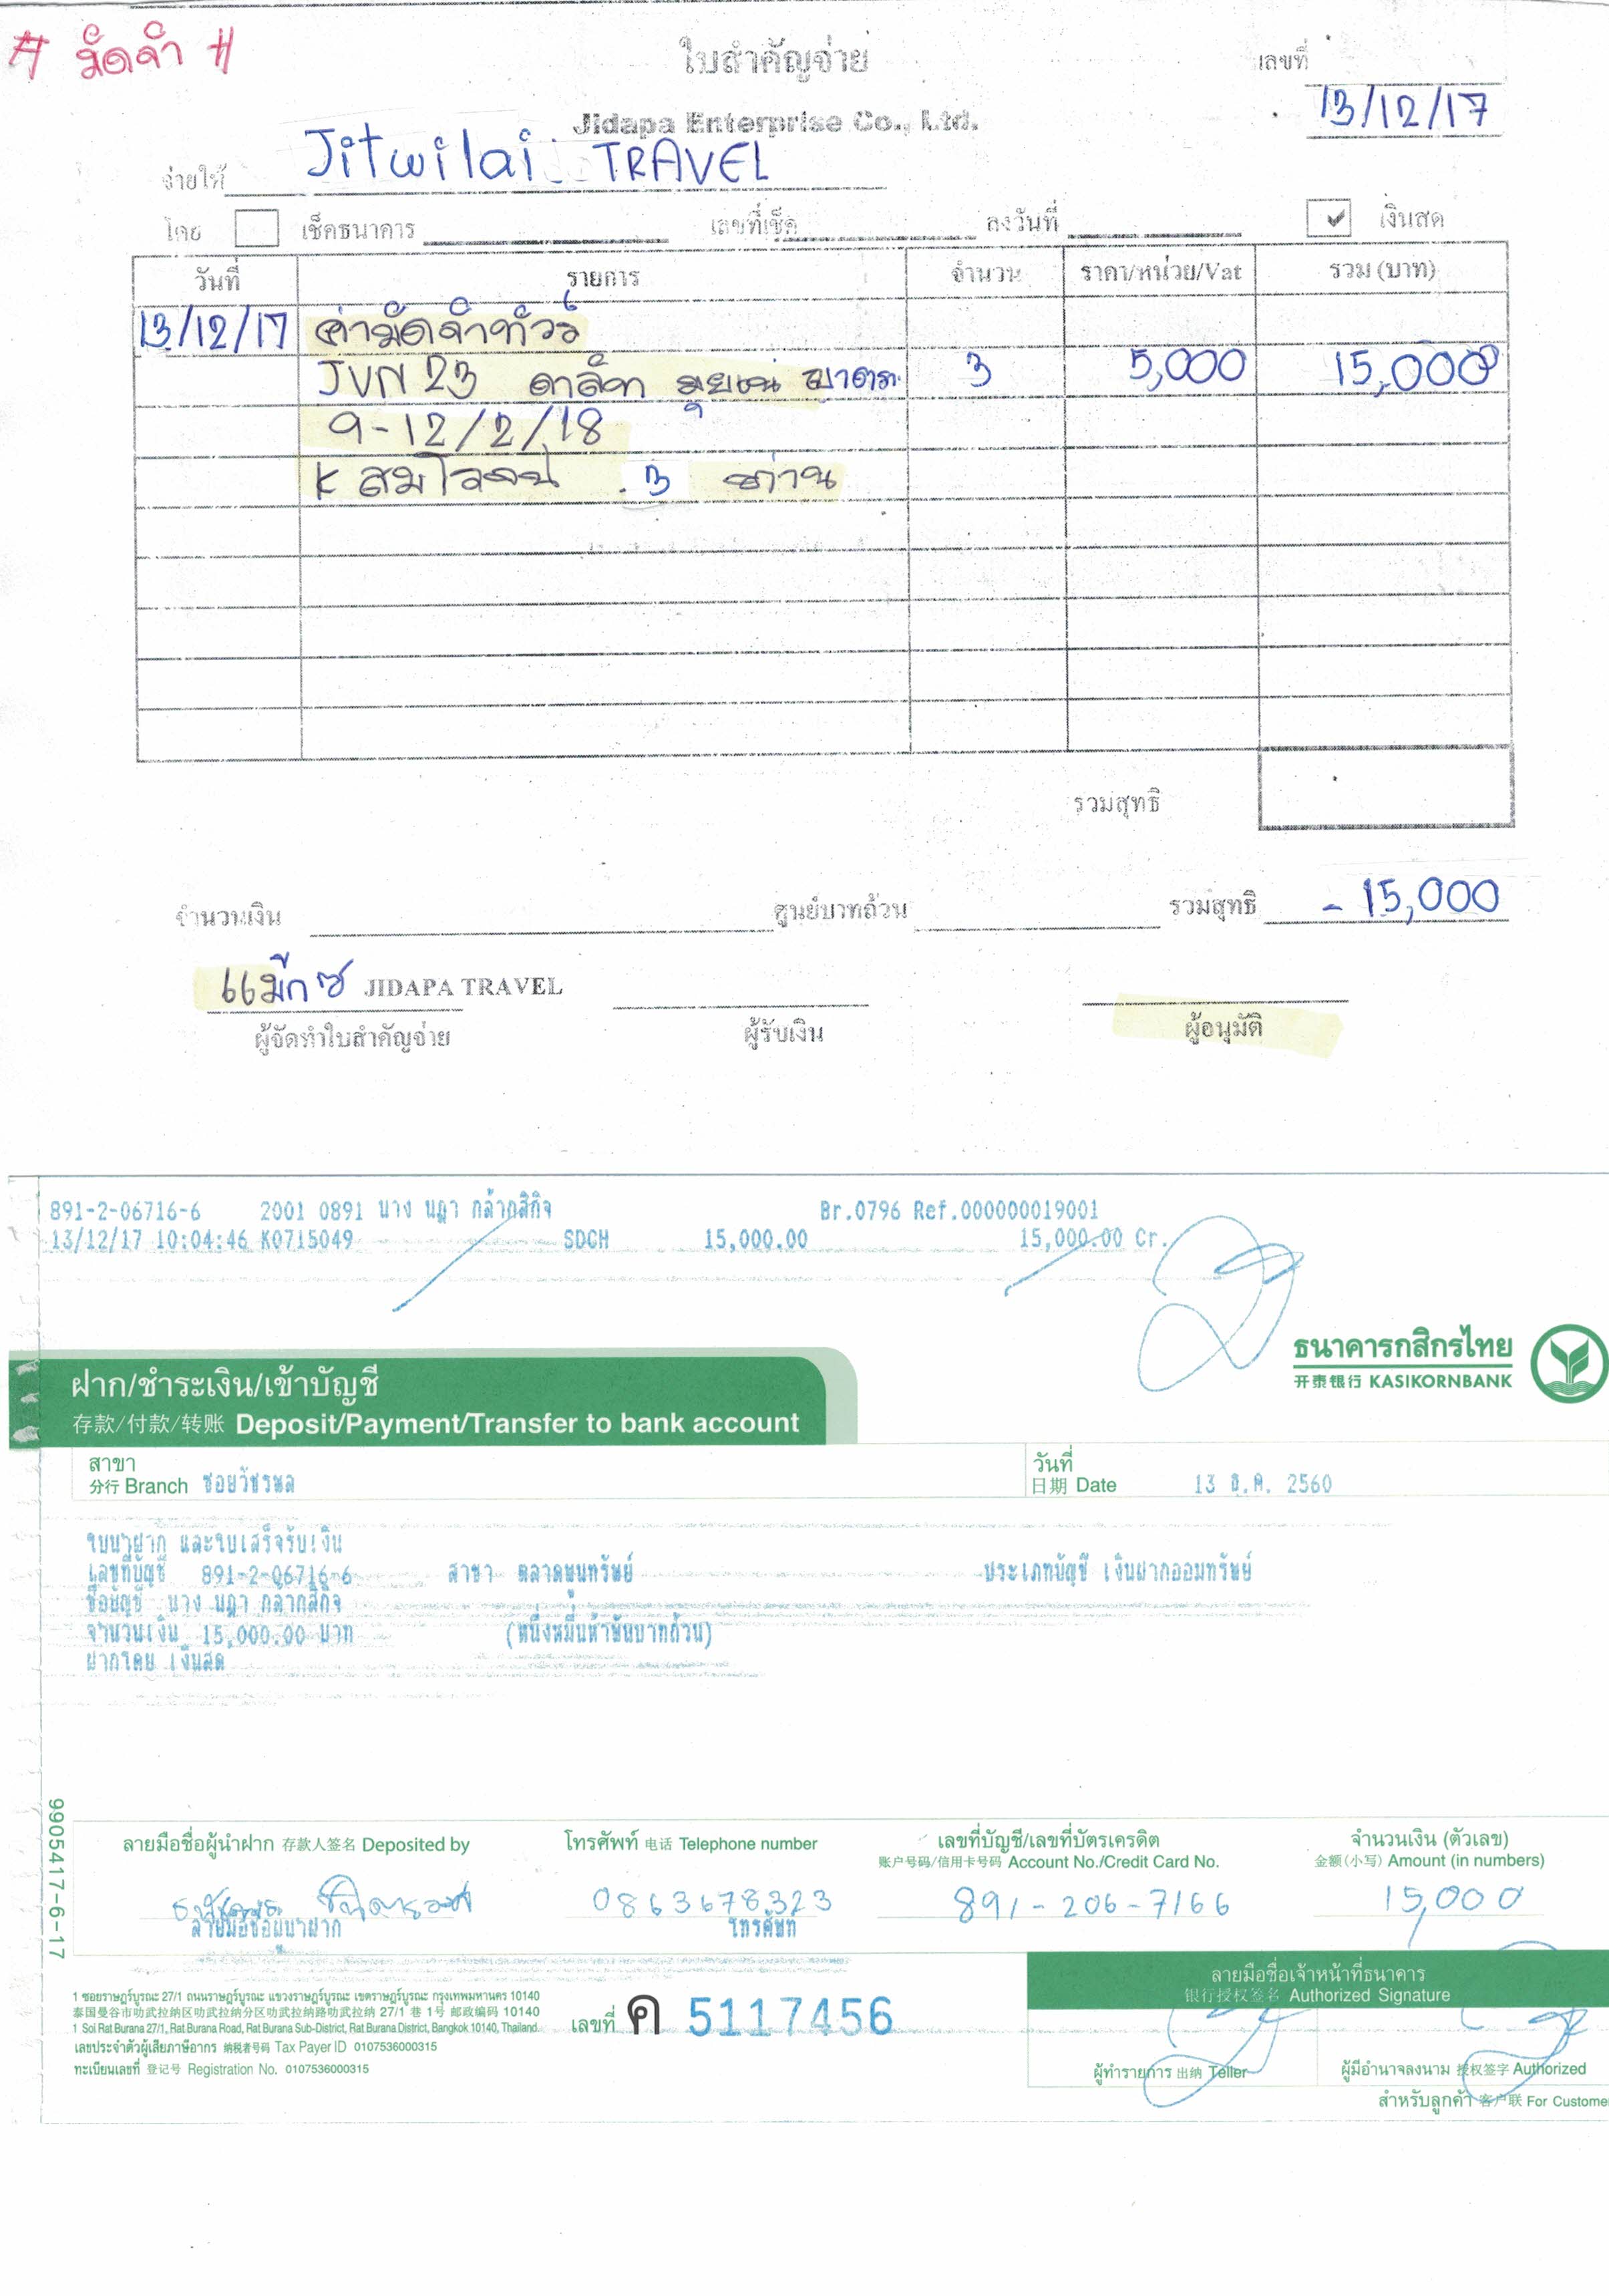 # มัดจำ #
ใบสำคัญจ่าย
เลขที่
13/12/17
Jidapa Enterprise Co., Ltd.
จ่ายให้ Jitwilai TRAVEL
โดย เช็คธนาคาร เลขที่เช็ค ลงวันที่ ✓ เงินสด
วันที่ รายการ จำนวน ราคา/หน่วย/Vat รวม (บาท)
13/12/17 ค่ามัดจำทัวร์
JVN 23 ดาลัท มุยเน่ 3 5,000 15,000
9-12/2/18
K 3 ท่าน
รวมสุทธิ
จำนวนเงิน ศูนย์บาทถ้วน รวมสุทธิ - 15,000
JIDAPA TRAVEL
ผู้จัดทำใบสำคัญจ่าย ผู้รับเงิน ผู้อนุมัติ
891-2-06716-6 2001 0891 นาง นฎา กล้ากสิกิจ Br.0796 Ref.000000019001
13/12/17 10:04:46 K0715049 SDCH 15,000.00 15,000.00 Cr.
ธนาคารกสิกรไทย
开泰银行 KASIKORNBANK
ฝาก/ชำระเงิน/เข้าบัญชี
存款/付款/转账 Deposit/Payment/Transfer to bank account
สาขา
分行 Branch ซอยวัชรพล
วันที่
日期 Date 13 ธ.ค. 2560
ใบนำฝาก และใบเสร็จรับเงิน
เลขที่บัญชี 891-2-06716-6 สาขา ตลาดพูนทรัพย์ ประเภทบัญชี เงินฝากออมทรัพย์
ชื่อบัญชี นาง นฎา กล้ากสิกิจ
จำนวนเงิน 15,000.00 บาท (หนึ่งหมื่นห้าพันบาทถ้วน)
ฝากโดย เงินสด
9905417-6-17
ลายมือชื่อผู้นำฝาก 存款人签名 Deposited by
โทรศัพท์ 电话 Telephone number
เลขที่บัญชี/เลขที่บัตรเครดิต
账户号码/信用卡号码 Account No./Credit Card No.
จำนวนเงิน (ตัวเลข)
金额(小写) Amount (in numbers)
0863678323 891-206-7166 15,000
ลายมือชื่อผู้นำฝาก โทรศัพท์
1 ซอยราษฎร์บูรณะ 27/1 ถนนราษฎร์บูรณะ แขวงราษฎร์บูรณะ เขตราษฎร์บูรณะ กรุงเทพมหานคร 10140
泰国曼谷市叻武拉纳区叻武拉纳分区叻武拉纳路叻武拉纳 27/1 巷 1号 邮政编码 10140
1 Soi Rat Burana 27/1, Rat Burana Road, Rat Burana Sub-District, Rat Burana District, Bangkok 10140, Thailand.
เลขประจำตัวผู้เสียภาษีอากร 纳税者号码 Tax Payer ID 0107536000315
ทะเบียนเลขที่ 登记号 Registration No. 0107536000315
เลขที่ ค 5117456
ลายมือชื่อเจ้าหน้าที่ธนาคาร
银行授权签名 Authorized Signature
ผู้ทำรายการ 出纳 Teller
ผู้มีอำนาจลงนาม 授权签字 Authorized
สำหรับลูกค้า 客户联 For Custome